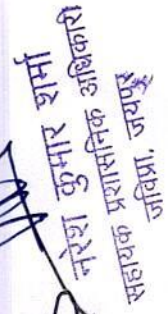 नरेश कुमार शर्मा
सहायक प्रशासनिक अधिकारी
जविप्रा, जयपुर